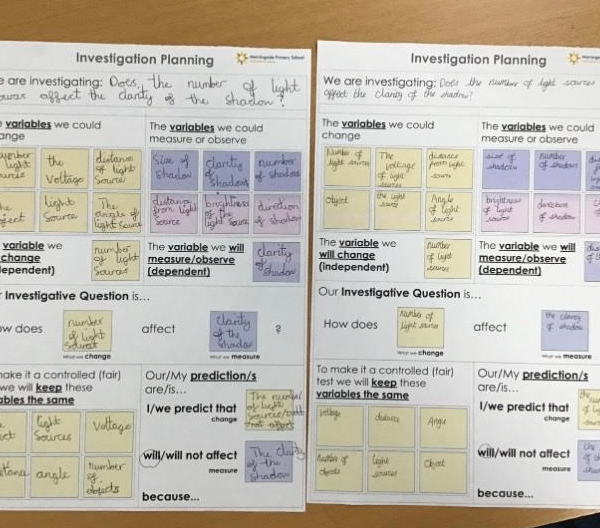 Investigation Planning
Morningside Primary School
e are investigating: Does the number of light
affect the clarity of the shadow?
The variables we could
change
The variables we could
measure or observe
number
light
the
Voltage
distance
of light
Source
Size of
shadow
clarity
of
shadows
number
of shadow
light
Source
The
angle of
light
source
distance
from light
source
brightness
of the
light source
direction
of shadow
variable we
change
dependent)
number
of light
Sources
The variable we will
measure/observe
(dependent)
clarity
of
shadow
r Investigative Question is...
w does
number
of light
Sources
What we change
affect
clarity
of the
shadow
What we measure
?
ake it a controlled (fair)
we will keep these
bles the same
light
Sources
Voltage
angle
number
of
objects
Our/My prediction/s
are/is...
I/we predict that
change
The number
of light
will/will not affect
measure
The clarity
of the
shadow
because...
Investigation Planning
Morningside Primary School
We are investigating: Does the number of light sources
affect the clarity of the shadow?
The variables we could
change
The variables we could
measure or observe
Number of
light sources
The
voltage
of light
sources
distance
from light
source
size of
shadow
number
of shadows
Object
the light
source
Angle
of light
source
brightness
of light
source
direction
of shadow
The variable we
will change
(independent)
number
of light
sources
The variable we will
measure/observe
(dependent)
Our Investigative Question is...
How does
number of
light sources
What we change
affect
the clarity
of shadow
What we measure
To make it a controlled (fair)
test we will keep these
variables the same
voltage
distance
Angle
number of
objects
light
sources
Object
Our/My prediction/s
are/is...
I/we predict that
change
will/will not affect
measure
because...